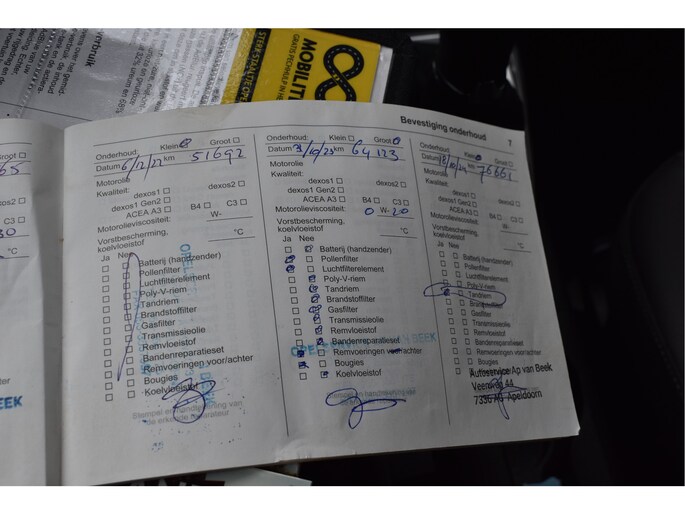 verbruik
STERK STAALTJE OPEL
MOBILITE
GRATIS PECHHULP IN H
Bevestiging onderhoud 7
Groot
65
30
°C
BEEK
Onderhoud: Klein Groot
Datum 6/12/22 km 51692
Motorolie
Kwaliteit:
dexos1 dexos2
dexos1 Gen2
ACEA A3 B4 C3
Motorolieviscositeit: W-
Vorstbescherming, °C
koelvloeistof
Ja Nee
Batterij (handzender)
Pollenfilter
Luchtfilterelement
Poly-V-riem
Tandriem
Brandstoffilter
Gasfilter
Transmissieolie
Remvloeistof
Bandenreparatieset
Remvoeringen voor/achter
Bougies
Koelvloeistof
Stempel en handtekening van
de erkende reparateur
Onderhoud: Klein Groot
Datum 3/10/23 km 64123
Motorolie
Kwaliteit:
dexos1 dexos2
dexos1 Gen2
ACEA A3 B4 C3
Motorolieviscositeit: 0 W- 20
Vorstbescherming, °C
koelvloeistof
Ja Nee
Batterij (handzender)
Pollenfilter
Luchtfilterelement
Poly-V-riem
Tandriem
Brandstoffilter
Gasfilter
Transmissieolie
Remvloeistof
Bandenreparatieset
Remvoeringen voor/achter
Bougies
Koelvloeistof
BEEK
Onderhoud: Klein Groot
Datum km 76661
Motorolie
Kwaliteit:
dexos1 dexos2
dexos1 Gen2
ACEA A3 B4 C3
Motorolieviscositeit: W-
Vorstbescherming, °C
koelvloeistof
Ja Nee
Batterij (handzender)
Pollenfilter
Luchtfilterelement
Poly-V-riem
Tandriem
Brandstoffilter
Gasfilter
Transmissieolie
Remvloeistof
Bandenreparatieset
Remvoeringen voor/achter
Bougies
Autoservice Ap van Beek
Veenweg 44
Apeldoorn